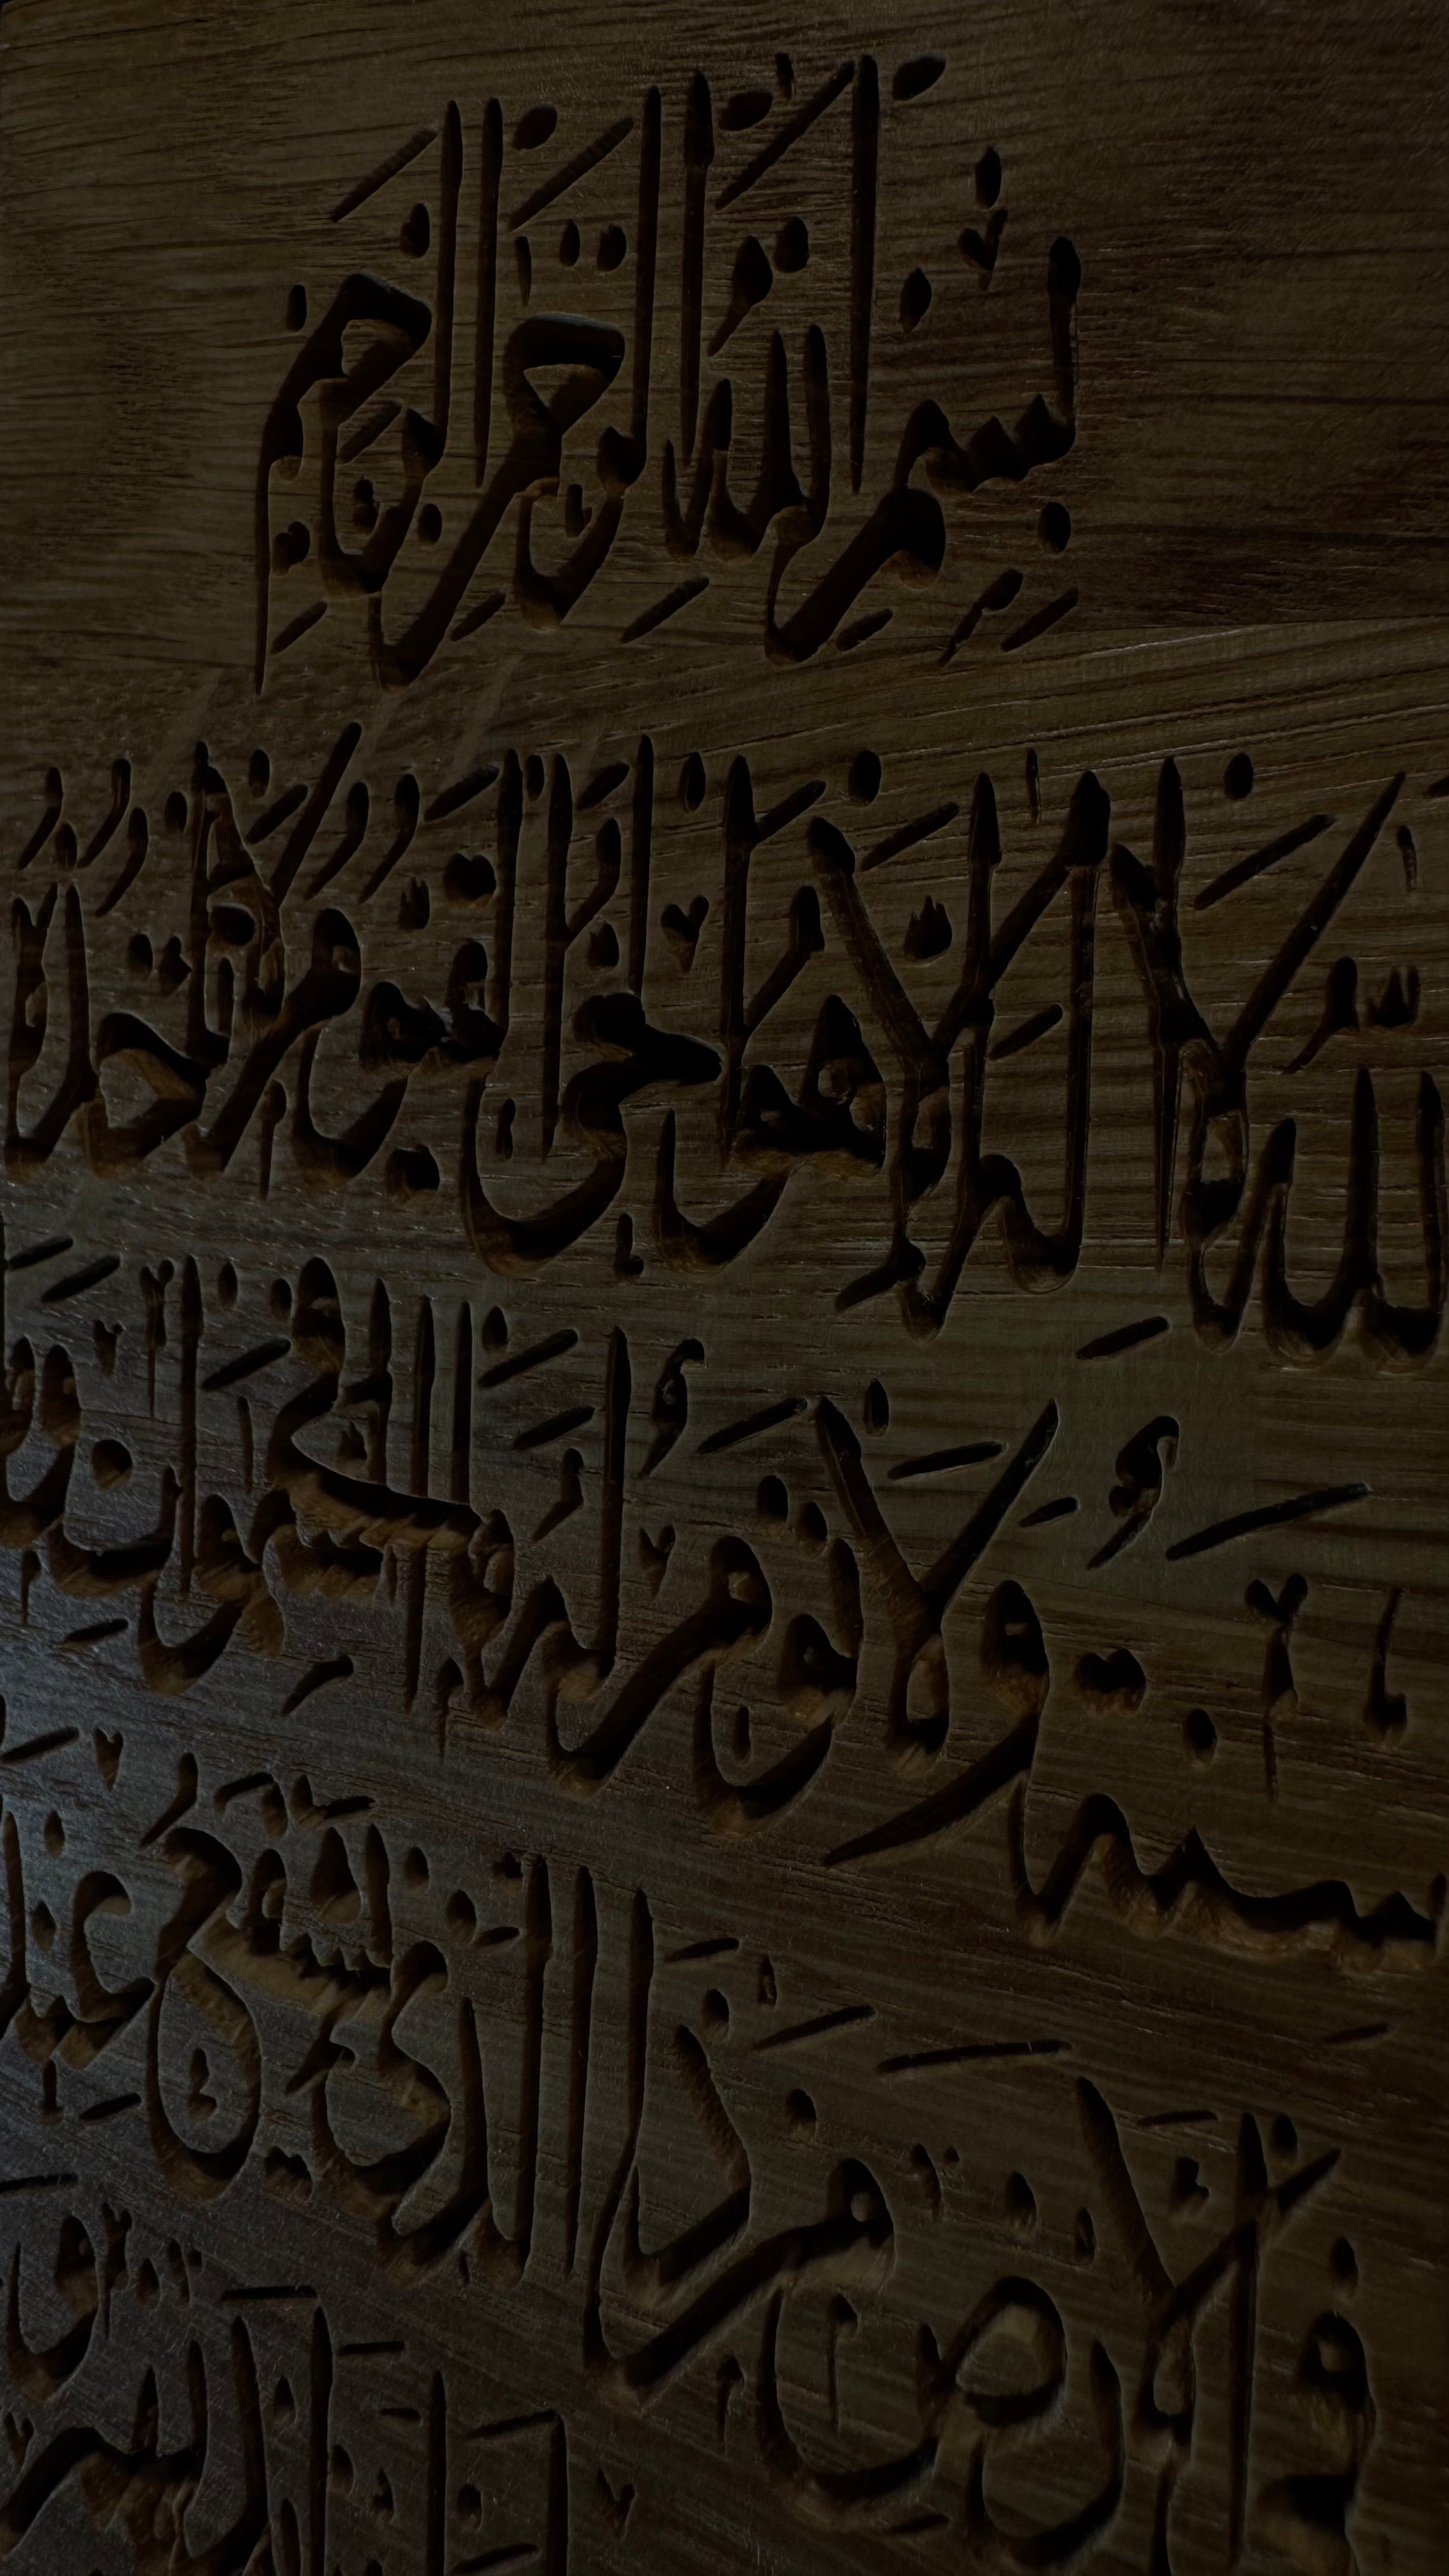 بِسْمِ اللهِ الرَّحْمٰنِ الرَّحِيمِ
اللهُ لَا إِلٰهَ إِلَّا هُوَ الْحَيُّ الْقَيُّومُ لَا تَأْخُذُهُ
سِنَةٌ وَلَا نَوْمٌ لَهُ مَا فِي السَّمٰوَاتِ وَمَا
فِي الْأَرْضِ مَنْ ذَا الَّذِي يَشْفَعُ عِنْدَهُ